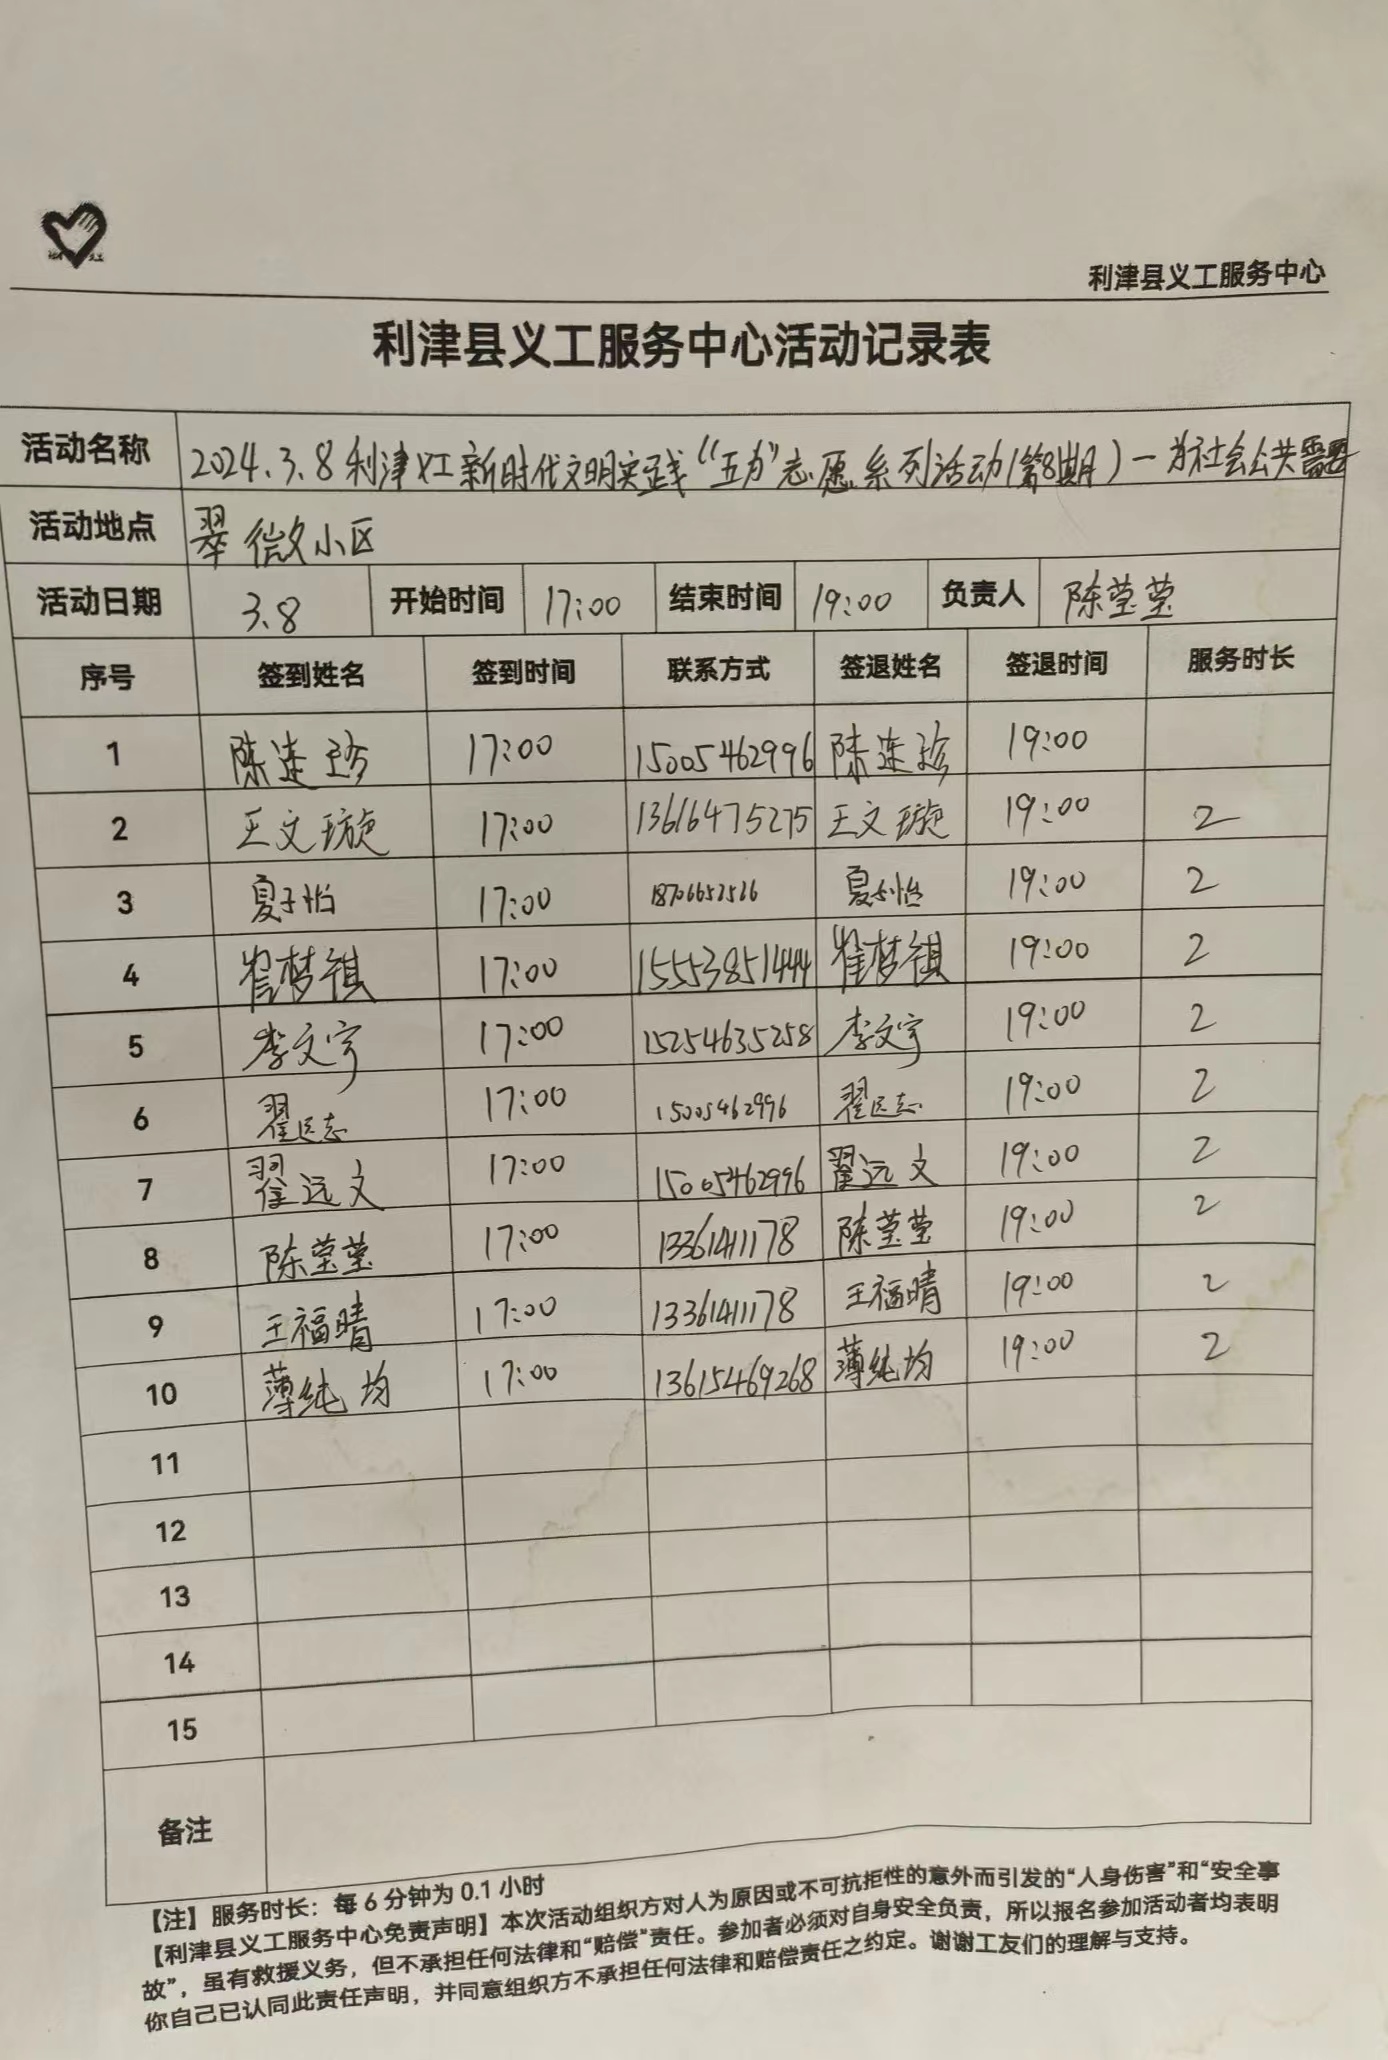 利津县义工服务中心
利津县义工服务中心活动记录表
活动名称 2024.3.8利津义工新时代文明实践“五为”志愿系列活动(第8期)一为社会公共需要
活动地点 翠微小区
活动日期 3.8 开始时间 17:00 结束时间 19:00 负责人 陈莹莹
序号 签到姓名 签到时间 联系方式 签退姓名 签退时间 服务时长
1 陈连珍 17:00 15005462996 陈连珍 19:00
2 王文璇 17:00 13616475275 王文璇 19:00 2
3 夏子怡 17:00 18706652526 夏子怡 19:00 2
4 翟梦祺 17:00 15553851444 翟梦祺 19:00 2
5 李文宇 17:00 15254635258 李文宇 19:00 2
6 翟远志 17:00 15005462996 翟远志 19:00 2
7 翟远文 17:00 15005462996 翟远文 19:00 2
8 陈莹莹 17:00 13361411178 陈莹莹 19:00 2
9 王福晴 17:00 13361411178 王福晴 19:00 2
10 薄纯均 17:00 13615469268 薄纯均 19:00 2
11
12
13
14
15
备注
【注】服务时长：每6分钟为0.1小时
【利津县义工服务中心免责声明】本次活动组织方对人为原因或不可抗拒性的意外而引发的“人身伤害”和“安全事
故”，虽有救援义务，但不承担任何法律和“赔偿”责任。参加者必须对自身安全负责，所以报名参加活动者均表明
你自己已认同此责任声明，并同意组织方不承担任何法律和赔偿责任之约定。谢谢工友们的理解与支持。